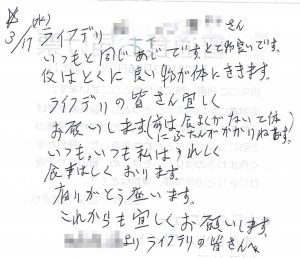 3/17 (水) ライフデリ さん
いつもと同じあじです。とても良いです。
夜はとくに良い物が体にききます。
ライフデリの皆さん宜しく
お願いします(前は食
いつも、いつも私はうれしく
食事はしております。
有りがとう座います。
これからも宜しくお願いします
よりライフデリの皆さんへ